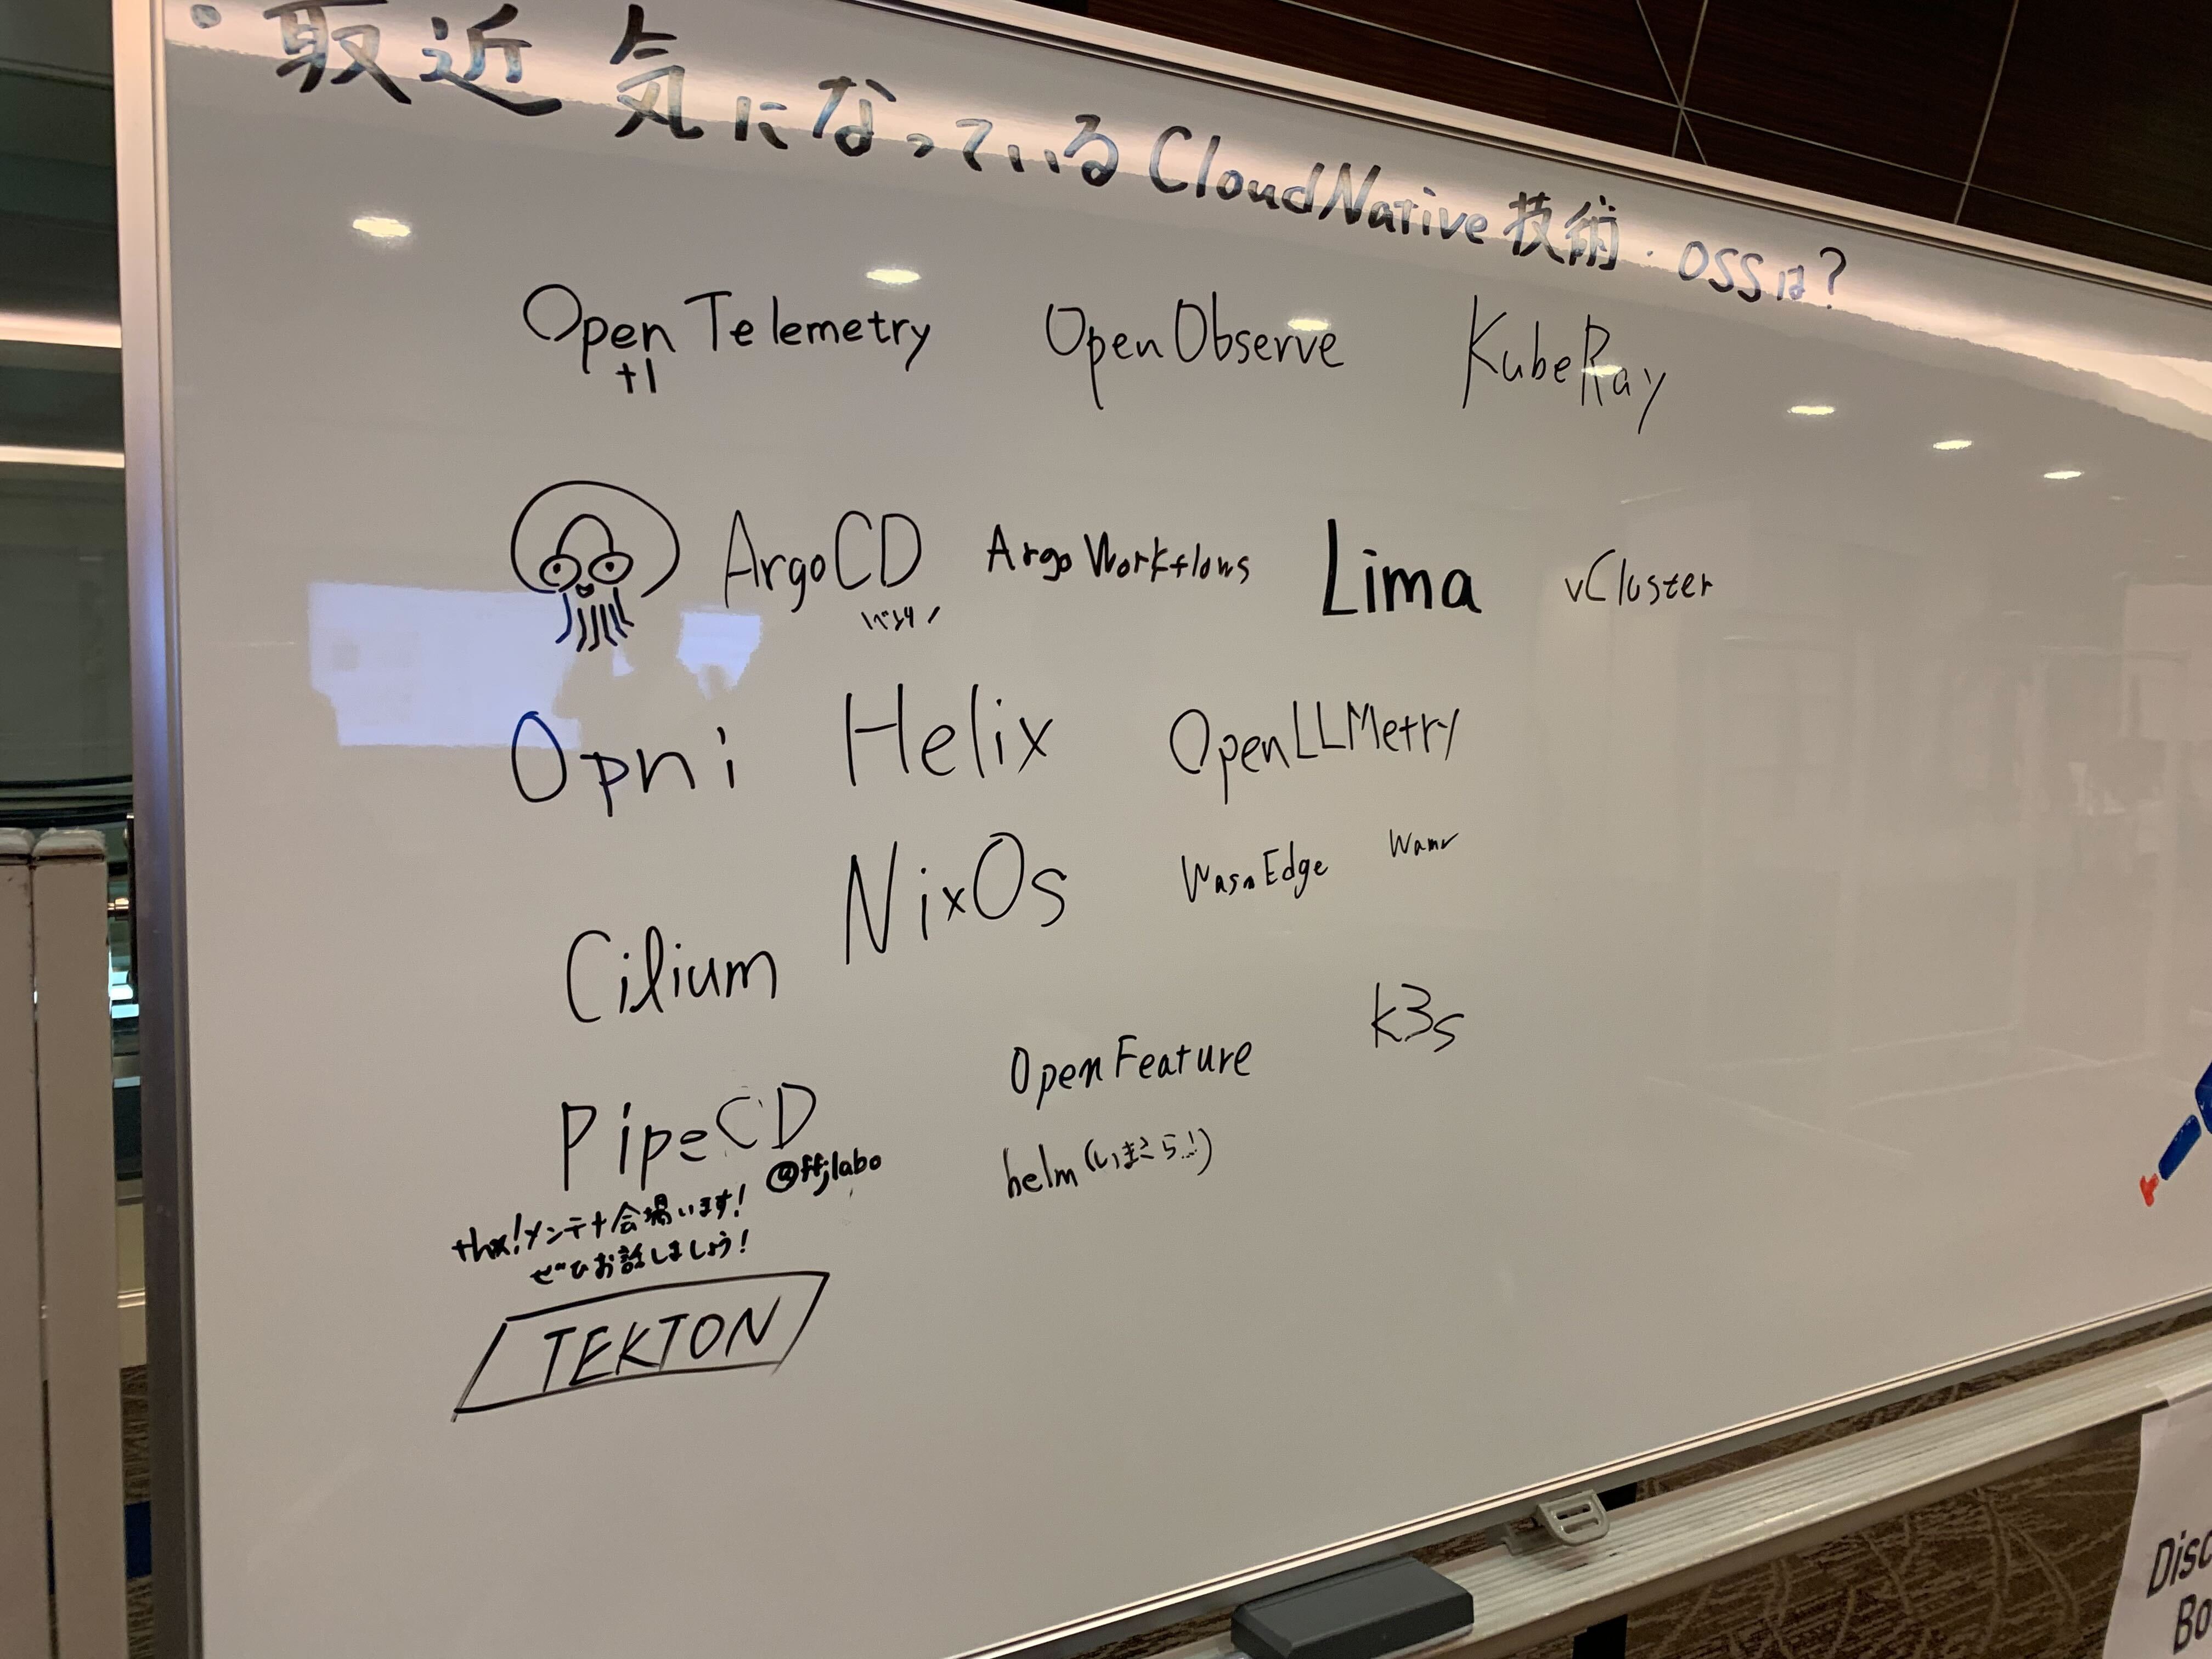 ・最近気になっているCloudNative技術・OSSは?
OpenTelemetry OpenObserve KubeRay
+1
ArgoCD Argo Workflows Lima vCluster
Opni Helix OpenLLMetry
NixOs WasmEdge Wamr
Cilium
k3s
OpenFeature
PipeCD
@ffjlabo
helm(いまさら!)
thx!メンテナ会場います!
ぜひお話しましょう!
TEKTON
Disc
Bo